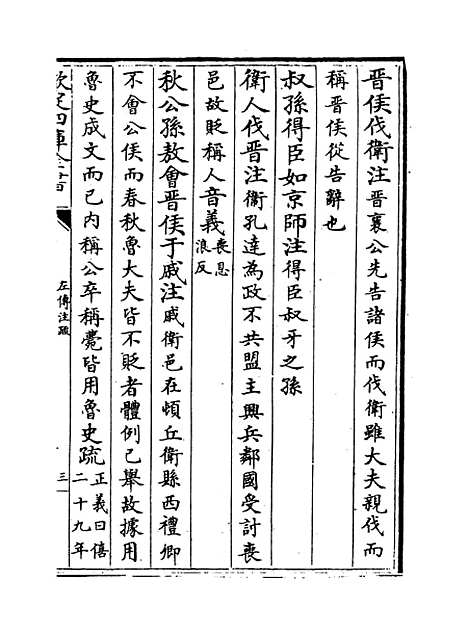 晉侯伐衛注晉襄公先告諸侯而伐衛雖大夫親伐而
稱晉侯從告辭也
叔孫得臣如京師注得臣叔牙之孫
衛人伐晉注衛孔達為政不共盟主興兵鄰國受討喪
邑故貶稱人音義喪息浪反
秋公孫敖會晉侯于戚注戚衛邑在頓丘衛縣西禮卿
不會公侯而春秋魯大夫皆不貶者體例已舉故據用
魯史成文而已內稱公卒稱薨皆用魯史疏正義曰僖二十九年
欽定四庫全書
左傳注疏
三